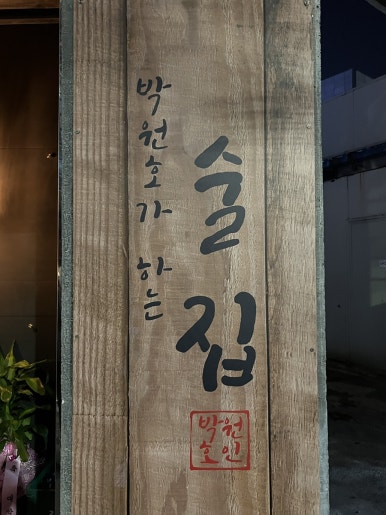 박원호가 하는
술집
박원
호인